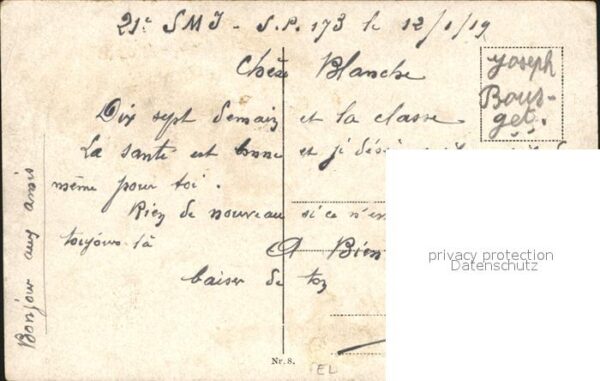 21e SMI - S.P. 173 le 12/1/19
Chère Blanche
Joseph
Bous-
get.
Dix sept demain et la classe
La santé est bonne et je
même pour toi.
Rien de nouveau si ce n'e
toujours là
A Bien
baiser de ton
Bonjour aux amis
privacy protection
Datenschutz
Nr. 8.
EL